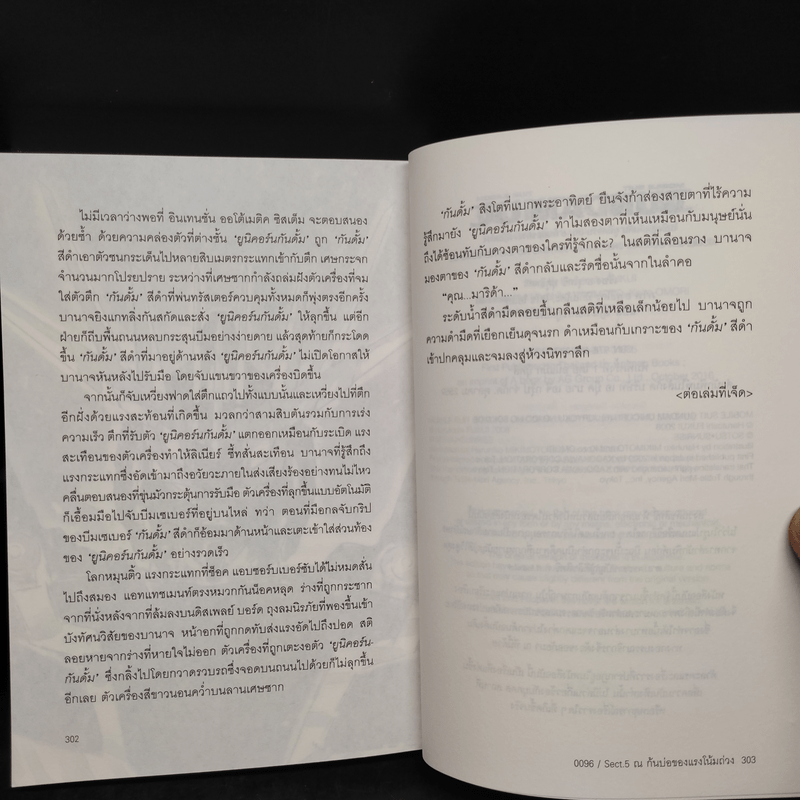 ไม่มีเวลาว่างพอที่ อินเทนชั่น ออโต้เมติค ซิสเต็ม จะตอบสนอง
ด้วยซ้ำ ด้วยความคล่องตัวที่ต่างชั้น ‘ยูนิคอร์นกันดั้ม’ ถูก ‘กันดั้ม’
สีดำเอาตัวชนกระเด็นไปหลายสิบเมตรกระแทกเข้ากับตึก เศษกระจก
จำนวนมากโปรยปราย ระหว่างที่เศษซากกำลังถล่มฝังตัวเครื่องที่จม
ใส่ตัวตึก ‘กันดั้ม’ สีดำที่พ่นทรัสเตอร์ควบคุมทั้งหมดก็พุ่งตรงอีกครั้ง
บานาจยิงแกทลิ่งกันสกัดและสั่ง ‘ยูนิคอร์นกันดั้ม’ ให้ลุกขึ้น แต่อีก
ฝ่ายก็ถีบพื้นถนนหลบกระสุนบีมอย่างง่ายดาย แล้วสุดท้ายก็กระโดด
ขึ้น ‘กันดั้ม’ สีดำที่มาอยู่ด้านหลัง ‘ยูนิคอร์นกันดั้ม’ ไม่เปิดโอกาสให้
บานาจหันหลังไปรับมือ โดยจับแขนขวาของเครื่องบิดขึ้น
จากนั้นก็จับเหวี่ยงฟาดใส่ตึกแถวไปทั้งแบบนั้นและเหวี่ยงไปที่ตึก
อีกฝั่งด้วยแรงสะท้อนที่เกิดขึ้น มวลกว่าสามสิบตันรวมกับการเร่ง
ความเร็ว ตึกที่รับตัว ‘ยูนิคอร์นกันดั้ม’ แตกออกเหมือนกับระเบิด แรง
สะเทือนของตัวเครื่องทำให้ลิเนียร์ ซีทสั่นสะเทือน บานาจที่รู้สึกถึง
แรงกระแทกซึ่งอัดเข้ามาถึงอวัยวะภายในส่งเสียงร้องอย่างทนไม่ไหว
คลื่นตอบสนองที่ขุ่นมัวกระตุ้นการรับมือ ตัวเครื่องที่ลุกขึ้นแบบอัตโนมัติ
ก็เอื้อมมือไปจับบีมเซเบอร์ที่อยู่บนไหล่ ทว่า ตอนที่มือกลจับกริป
ของบีมเซเบอร์ ‘กันดั้ม’ สีดำก็อ้อมมาด้านหน้าและเตะเข้าใส่ส่วนท้อง
ของ ‘ยูนิคอร์นกันดั้ม’ อย่างรวดเร็ว
โลกหมุนติ้ว แรงกระแทกที่ช็อค แอบซอร์บเบอร์ซับได้ไม่หมดสั่น
ไปถึงสมอง แอทแทชเมนท์ตรงหมวกกันน็อคหลุด ร่างที่ถูกกระชาก
จากที่นั่งหลังจากที่ล้มลงบนดิสเพลย์ บอร์ด ถุงลมนิรภัยที่พองขึ้นเข้า
บังทัศนวิสัยของบานาจ หน้าอกที่ถูกกดทับส่งแรงอัดไปถึงปอด สติ
ลอยหายจากร่างที่หายใจไม่ออก ตัวเครื่องที่ถูกเตะงอตัว ‘ยูนิคอร์น-
กันดั้ม’ ซึ่งกลิ้งไปโดยกวาดรวบรถซึ่งจอดบนถนนไปด้วยก็ไม่ลุกขึ้น
อีกเลย ตัวเครื่องสีขาวนอนคว่ำบนลานเศษซาก
302
‘กันดั้ม’ สิงโตที่แบกพระอาทิตย์ ยืนจังก้าส่องสายตาที่ไร้ความ
รู้สึกมายัง ‘ยูนิคอร์นกันดั้ม’ ทำไมสองตาที่เห็นเหมือนกับมนุษย์นั่น
ถึงได้ซ้อนทับกับดวงตาของใครที่รู้จักล่ะ? ในสติที่เลือนราง บานาจ
มองตาของ ‘กันดั้ม’ สีดำกลับและรีดชื่อนั้นจากในลำคอ
“คุณ...มาริด้า...”
ระดับน้ำสีดำมืดลอยขึ้นกลืนสติที่เหลือเล็กน้อยไป บานาจถูก
ความดำมืดที่เยือกเย็นดุจนรก ดำเหมือนกับเกราะของ ‘กันดั้ม’ สีดำ
เข้าปกคลุมและจมลงสู่ห้วงนิทราลึก
<ต่อเล่มที่เจ็ด>
0096 / Sect.5 ณ ก้นบ่อของแรงโน้มถ่วง 303